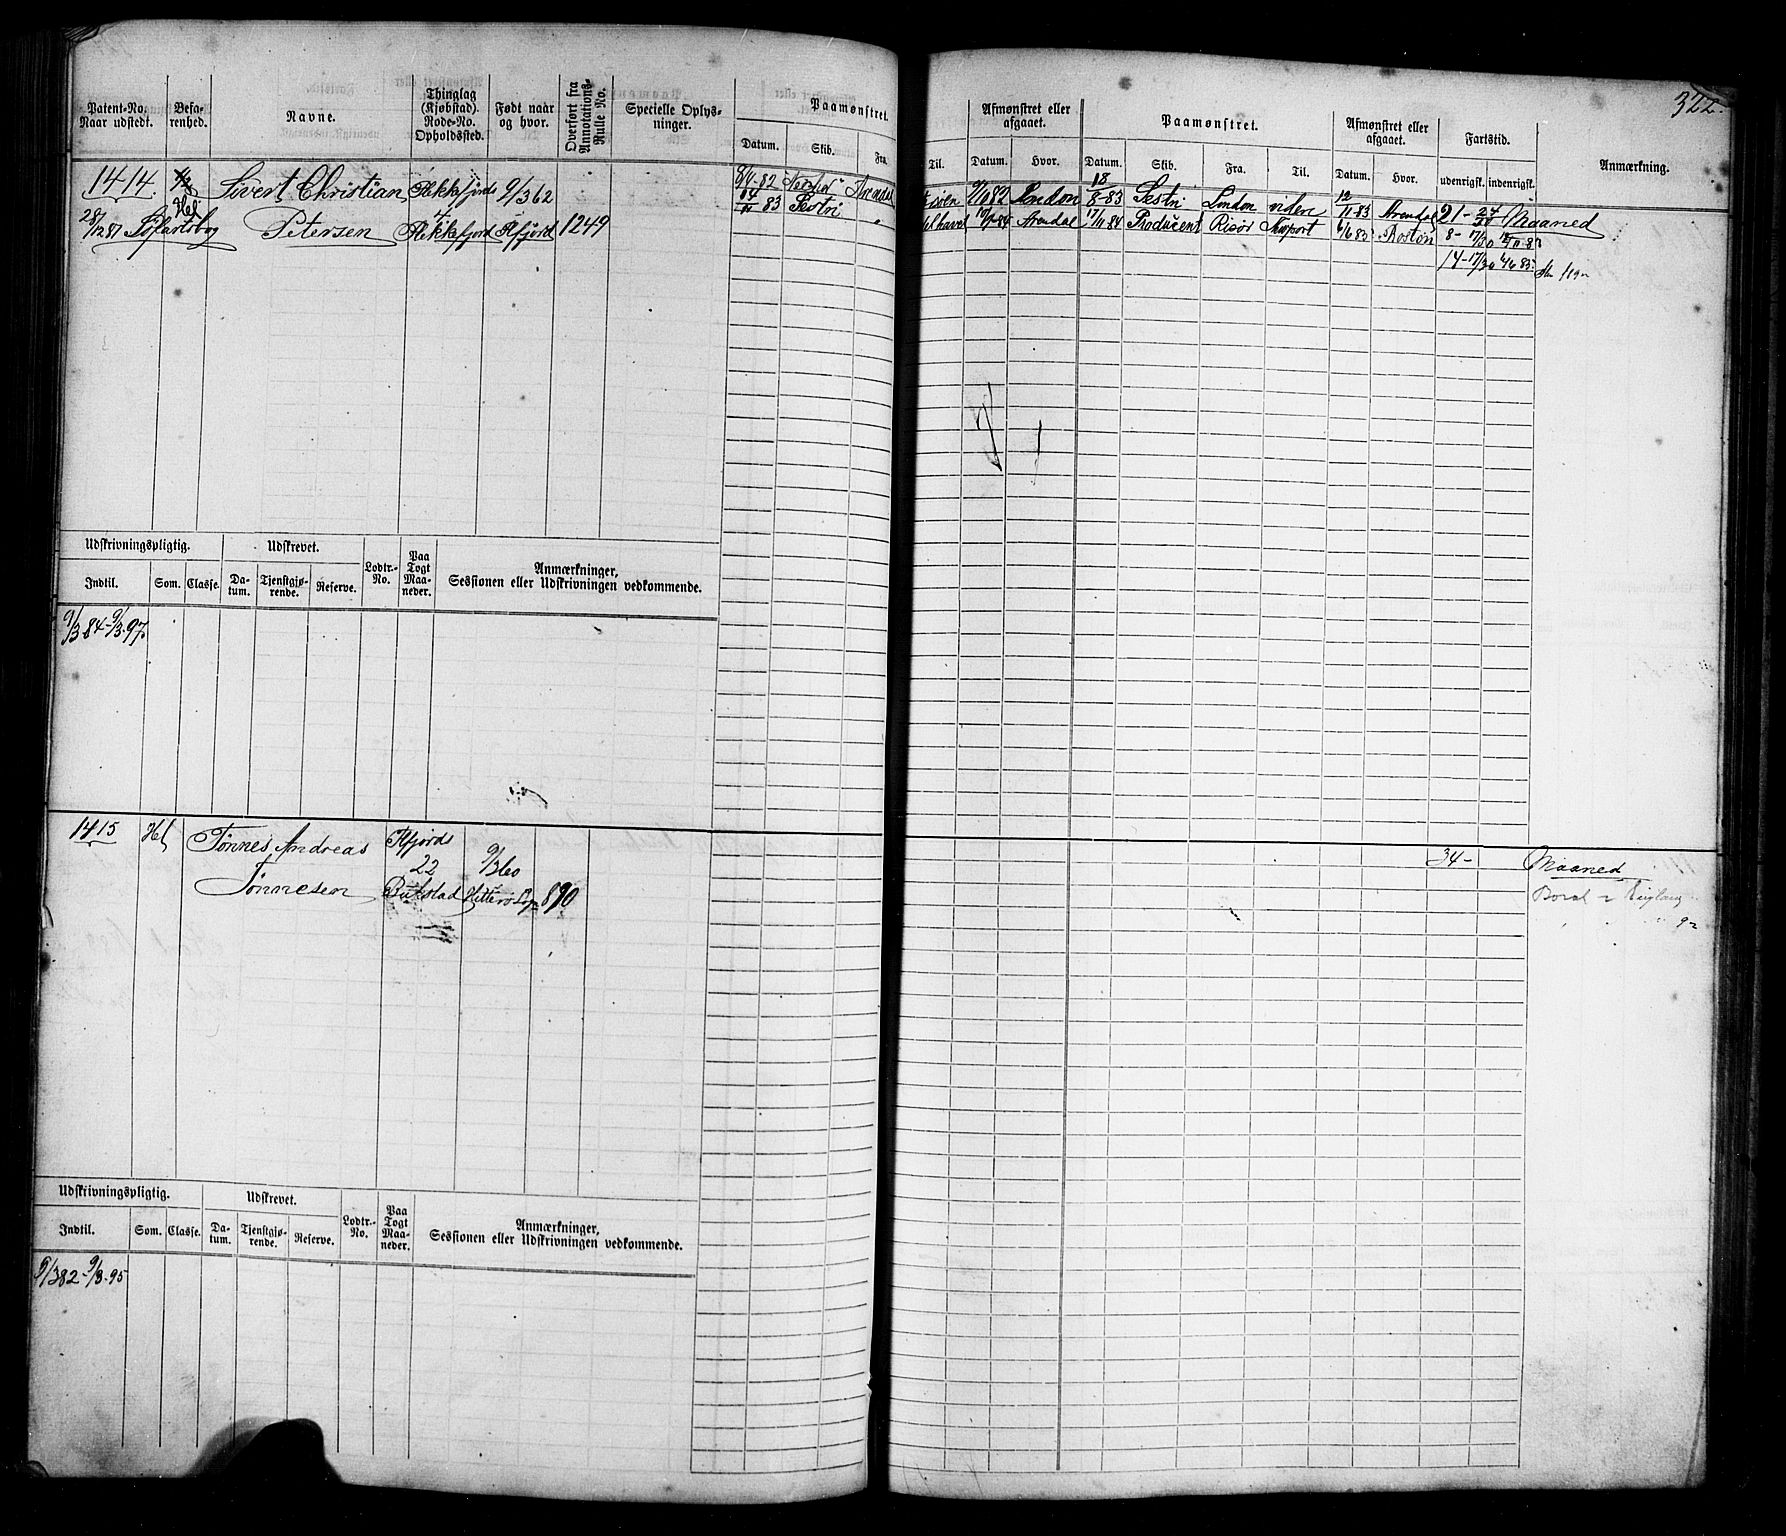 322.
Patent-No. Naar udstedt.
Befarenhed.
Navne.
Thinglag (Kjøbstad). Rode-No. Opholdssted.
Født naar og hvor.
Overført fra Annotations-Rulle No.
Specielle Oplysninger.
Paamønstret.
Datum. Skib. Fra. Til.
Afmønstret eller afgaaet.
Datum. Hvor.
Paamønstret.
Datum. Skib. Fra. Til.
Afmønstret eller afgaaet.
Datum. Hvor.
Fartstid.
udenrigsk. indenrigsk.
Anmærkning.
1414. Sivert Christian Flekkefjords 9/3 62
28/12 81 Søfartsbog Hel Petersen 4 Flekkefjord Ffjord 1249
8/4-82 Arendal London
18/8-83 Sestri London 12/11 83 Arendal 21- Maaned
14/11 83 Sestri " Arendal 17/11 84 Producent Risør Newport 6/6 85 Boston 8- 17/30
14-17/30 6/6 85.
Udskrivningspligtig. Udskrevet. Lodtr.-No. Paa Togt Maaneder. Anmærkninger, Sessionen eller Udskrivningen vedkommende.
Indtil. Som. Classe. Datum. Tjenstgjørende. Reserve.
9/3 84-9/3.97
1415 Hel Tønnes Andreas Ffjords 34- Maaned
22 9/3 60
Tønnesen Hitterø 890
Udskrivningspligtig. Udskrevet. Lodtr.-No. Paa Togt Maaneder. Anmærkninger, Sessionen eller Udskrivningen vedkommende.
Indtil. Som. Classe. Datum. Tjenstgjørende. Reserve.
9/3 82-9/3-95